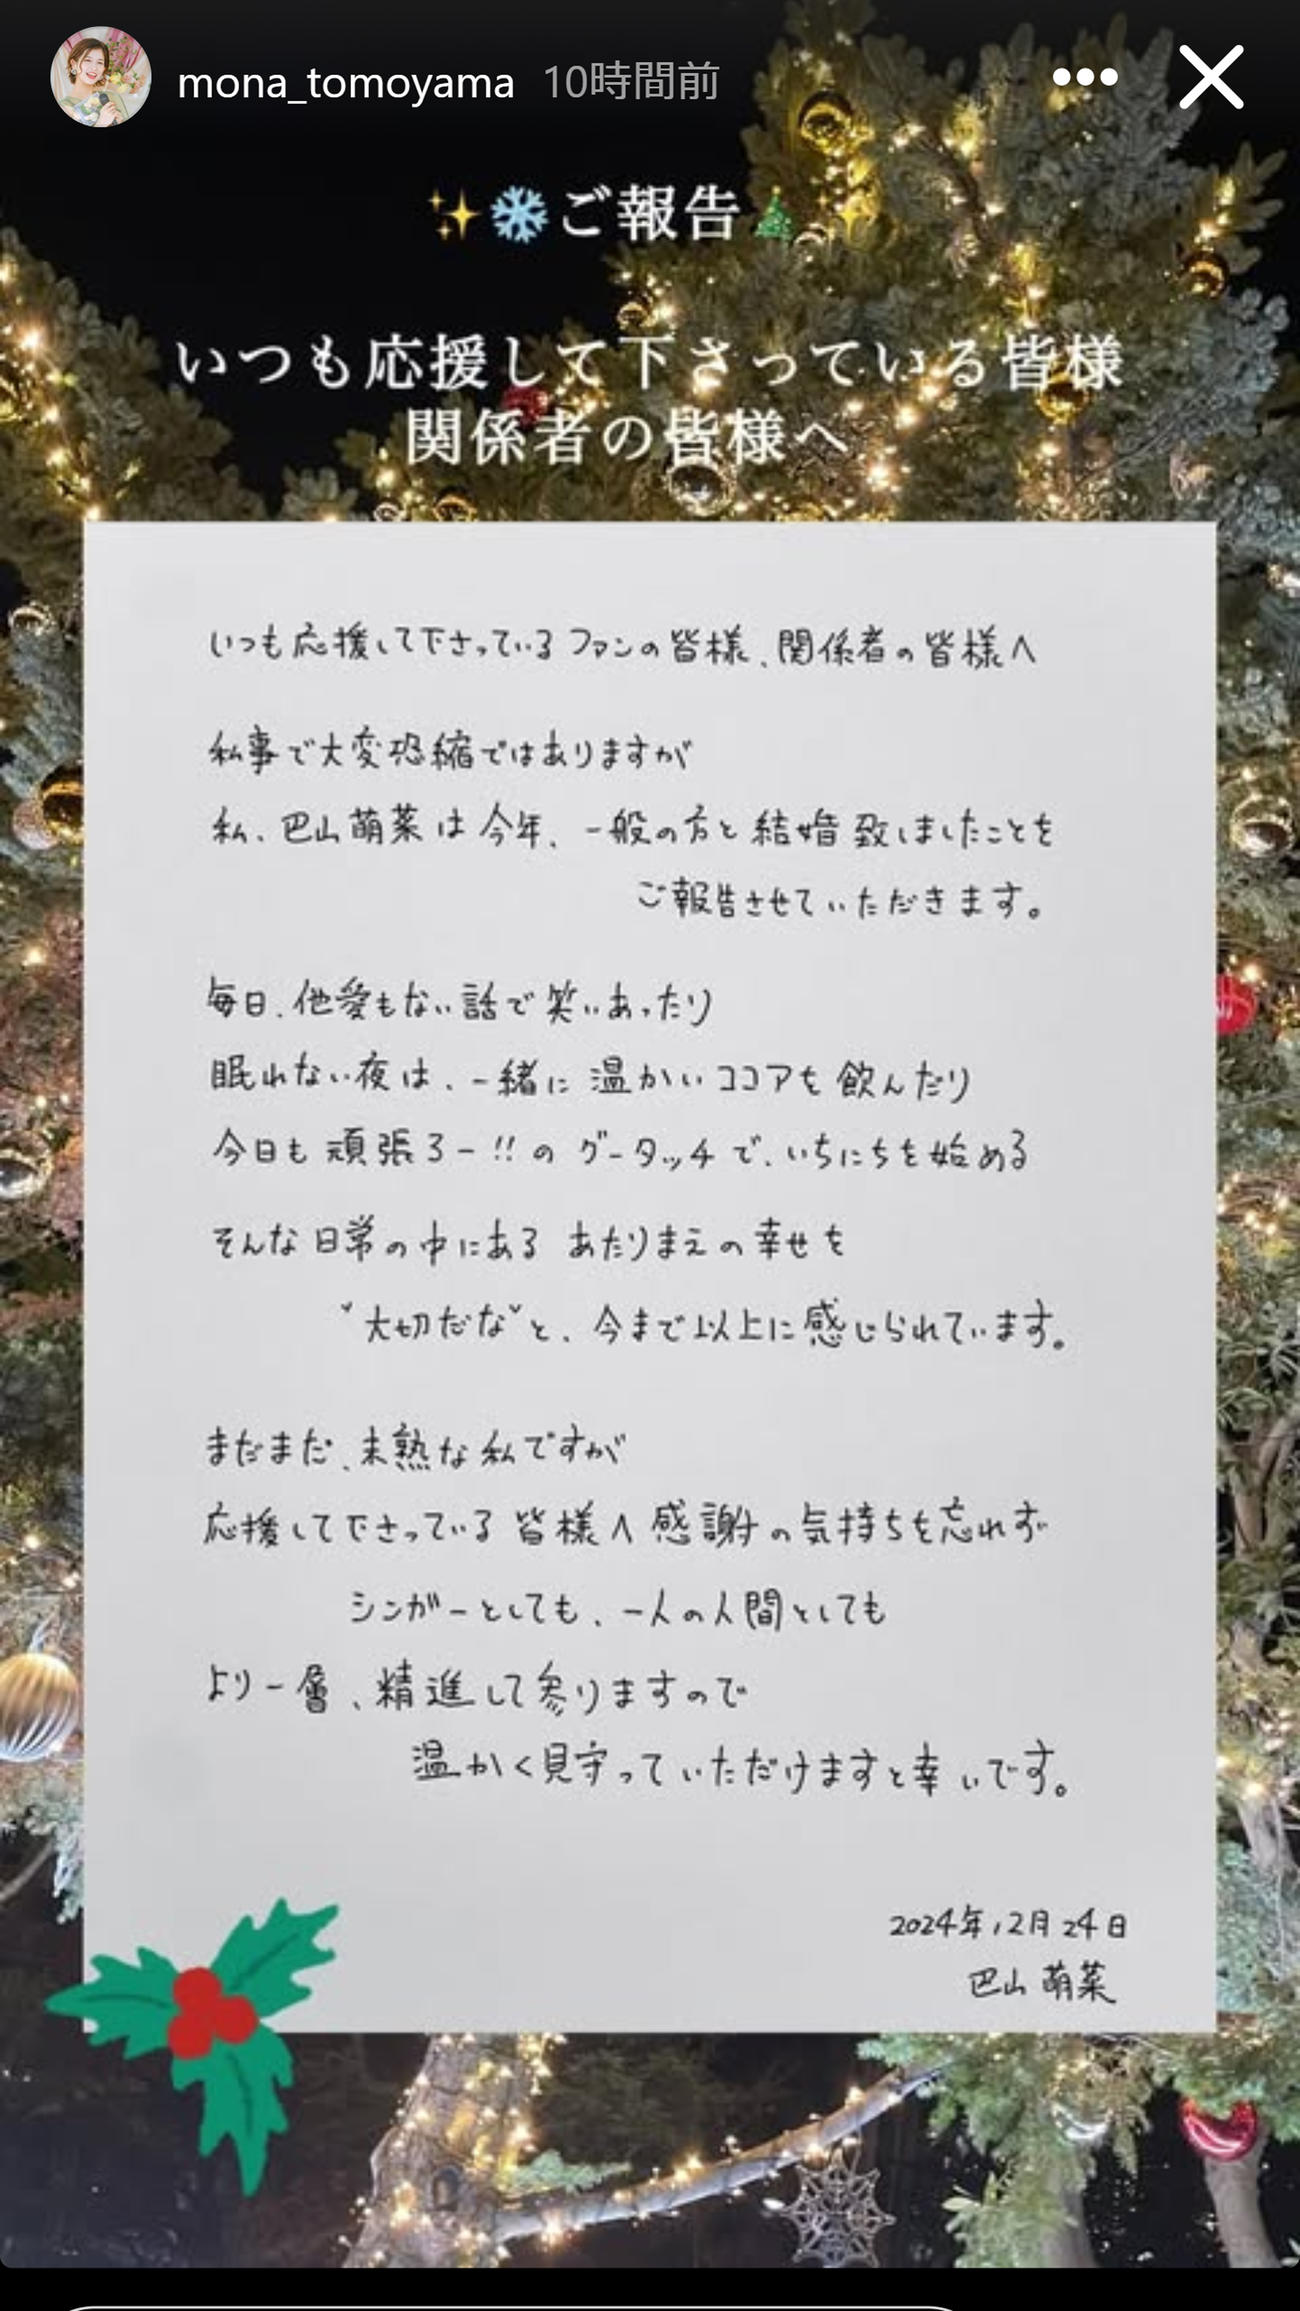 mona_tomoyama 10時間前
✨❄️ご報告🎄✨
いつも応援して下さっている皆様
関係者の皆様へ
いつも応援して下さっているファンの皆様、関係者の皆様へ
私事で大変恐縮ではありますが
私、巴山萌菜は今年、一般の方と結婚致しましたことを
ご報告させていただきます。
毎日、他愛もない話で笑いあったり
眠れない夜は、一緒に温かいココアを飲んだり
今日も頑張ろー!!のグータッチで、いちにちを始める
そんな日常の中にある あたりまえの幸せを
"大切だな"と、今まで以上に感じられています。
まだまだ、未熟な私ですが
応援して下さっている皆様へ感謝の気持ちを忘れず
シンガーとしても、一人の人間としても
より一層、精進して参りますので
温かく見守っていただけますと幸いです。
2024年12月24日
巴山萌菜